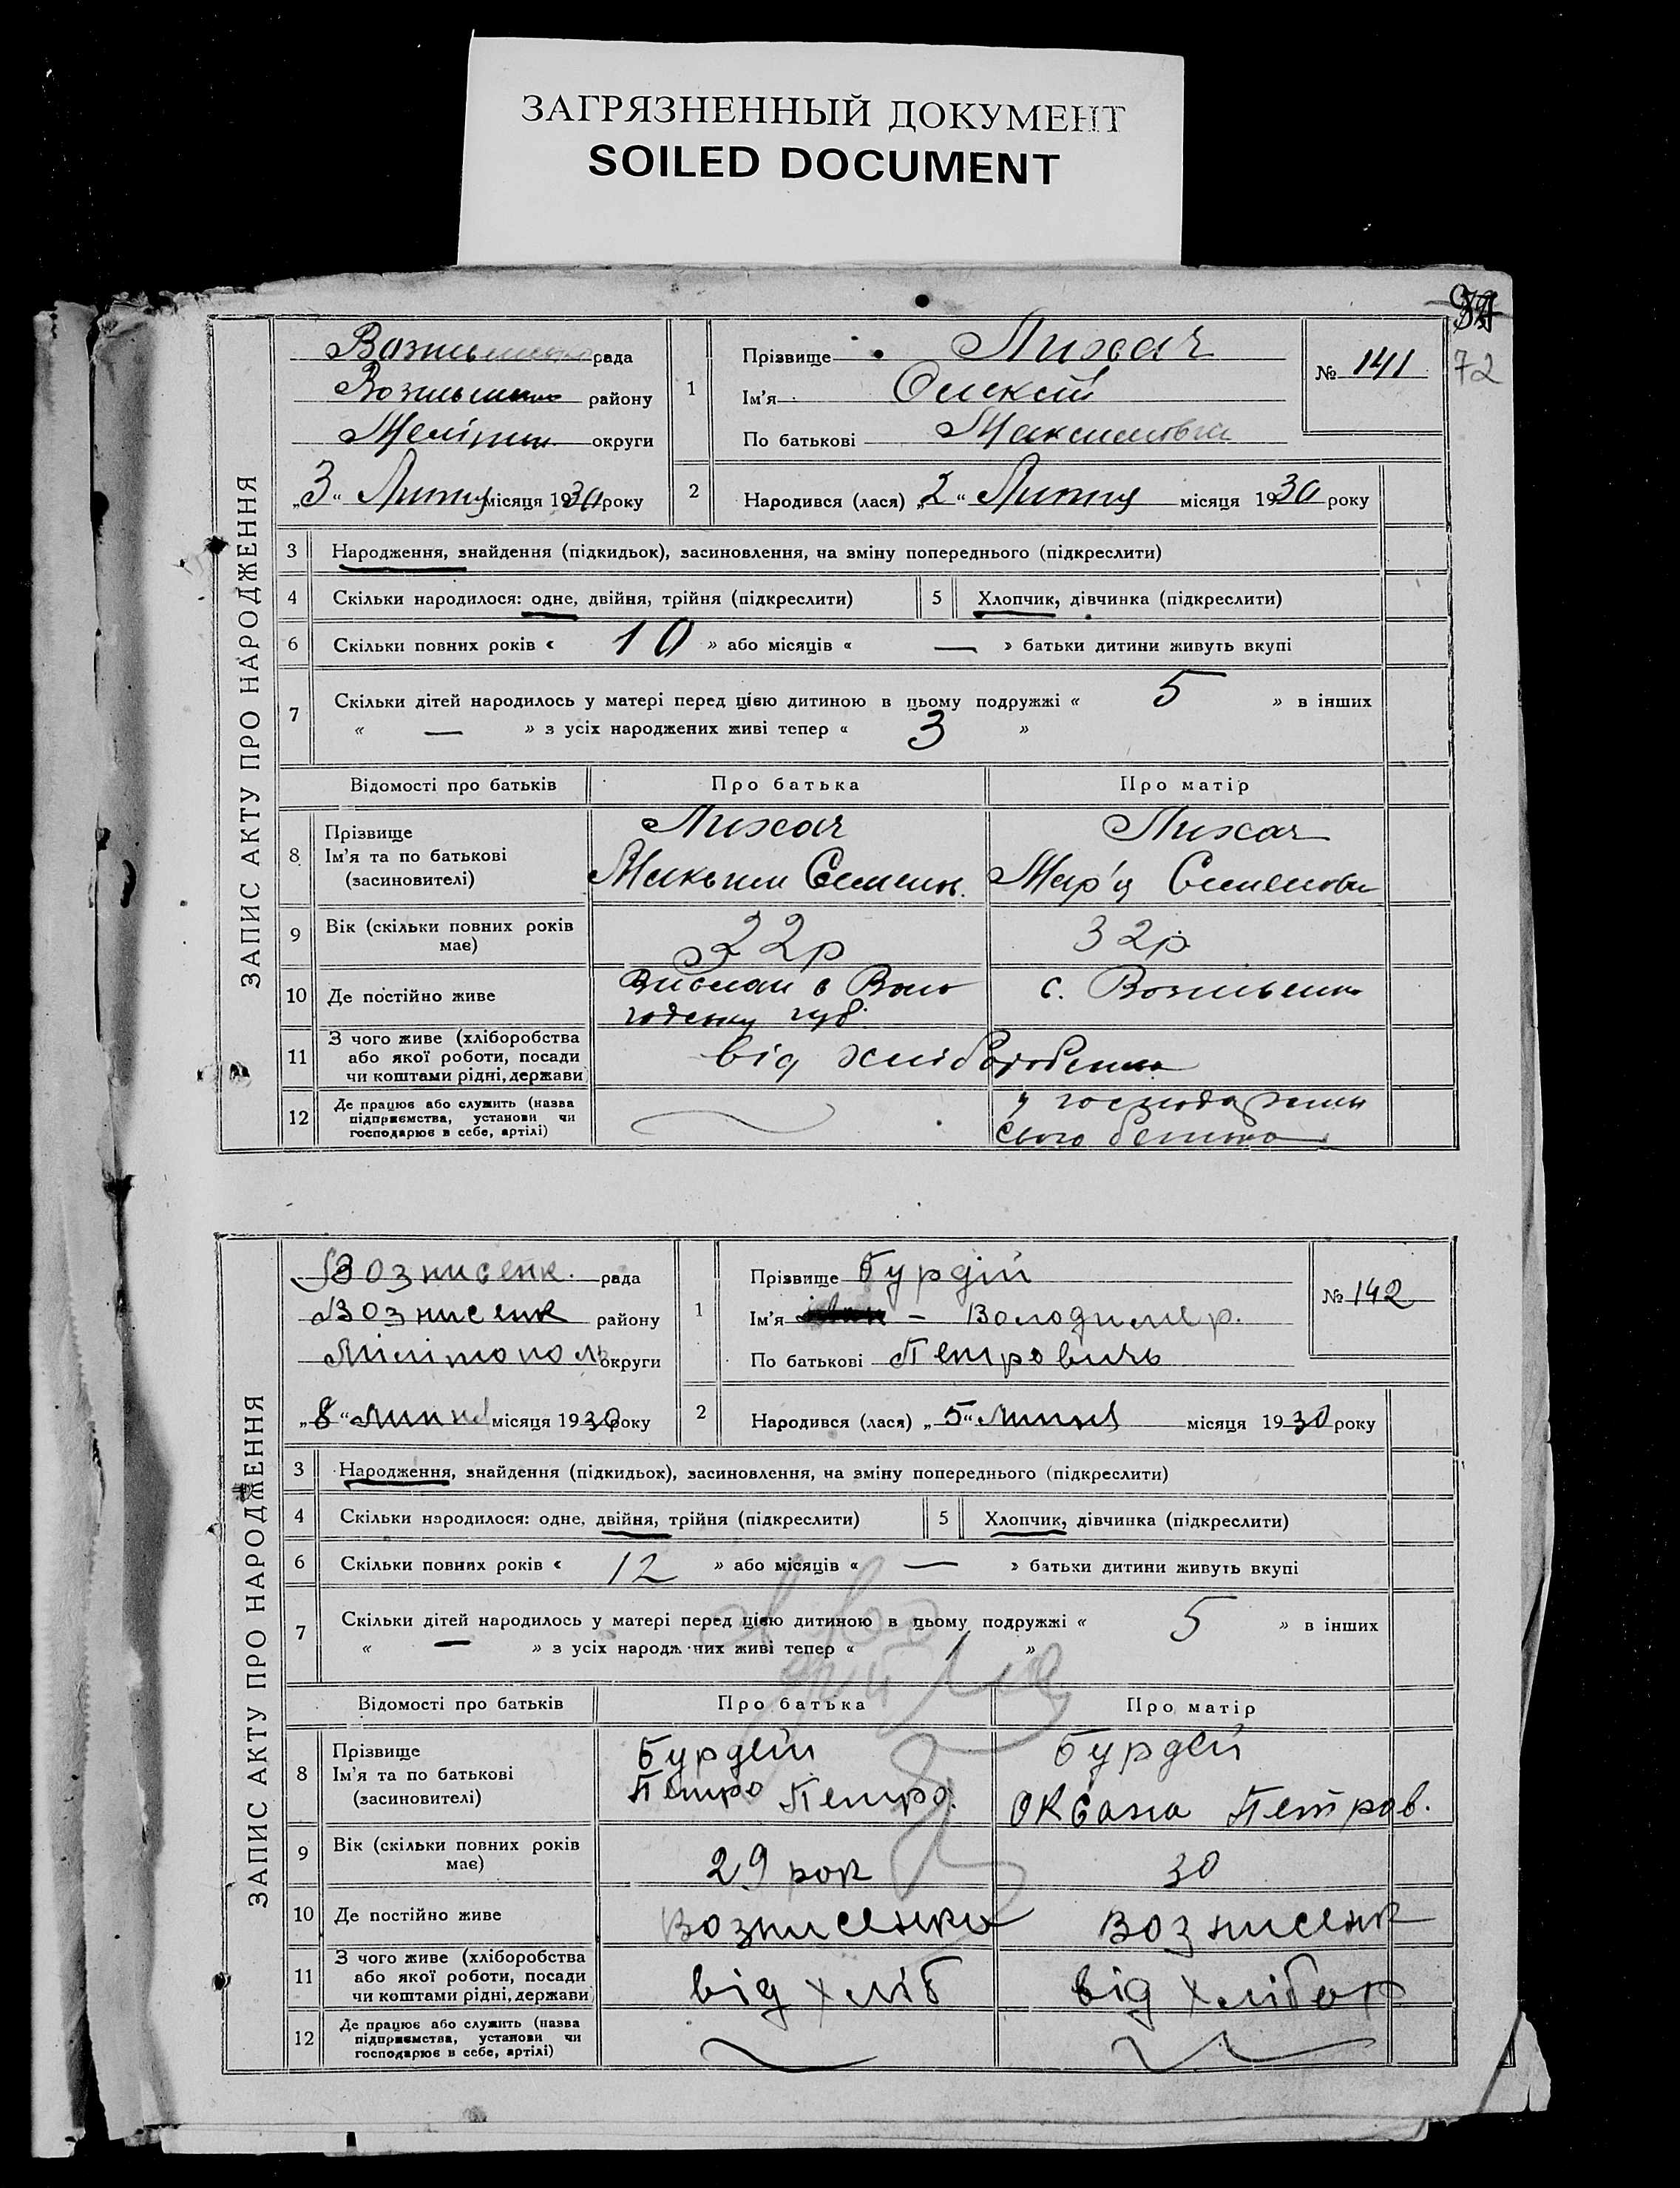 ЗАГРЯЗНЕННЫЙ ДОКУМЕНТ
SOILED DOCUMENT
72
ЗАПИС АКТУ ПРО НАРОДЖЕННЯ
рада
району
округи
„3“ Липня місяця 1930 року
1
Прізвище Лихач
Ім'я Олексій
По батькові
№ 141
2
Народився (лася) „2“ Липня місяця 1930 року
3 Народження, знайдення (підкидьок), засиновлення, на зміну попереднього (підкреслити)
4 Скільки народилося: одне, двійня, трійня (підкреслити) 5 Хлопчик, дівчинка (підкреслити)
6 Скільки повних років « 10 » або місяців « — » батьки дитини живуть вкупі
7 Скільки дітей народилось у матері перед цією дитиною в цьому подружжі « 5 » в інших
« — » з усіх народжених живі тепер « 3 »
Відомості про батьків Про батька Про матір
8 Прізвище
Ім'я та по батькові
(засновителі)
Лихач
Максим Семенов.
Лихач
Мар'я Семеновна
9 Вік (скільки повних років має) 32р 32р.
10 Де постійно живе
с. Вознесенка
11 З чого живе (хліборобства
або якої роботи, посади
чи коштами рідні, держави)
від хліборобства
12 Де працює або служить (назва
підприємства, установи чи
господарює в себе, артілі)
свого батька
ЗАПИС АКТУ ПРО НАРОДЖЕННЯ
Вознисенк. рада
Вознисенк району
Мілітополь округи
„8“ Липня місяця 1930 року
1
Прізвище Бурдій
Ім'я — Володимер.
По батькові Петровичь
№ 142
2
Народився (лася) „5“ Липня місяця 1930 року
3 Народження, знайдення (підкидьох), засиновлення, на зміну попереднього (підкреслити)
4 Скільки народилося: одне, двійня, трійня (підкреслити) 5 Хлопчик, дівчинка (підкреслити)
6 Скільки повних років « 12 » або місяців « — » батьки дитини живуть вкупі
7 Скільки дітей народилось у матері перед цією дитиною в цьому подружжі « 5 » в інших
« — » з усіх народж них живі тепер « 1 »
Відомості про батьків Про батька Про матір
8 Прізвище
Ім'я та по батькові
(засиновителі)
Бурдей
Петро Петро.
Бурдей
Оксана Петров.
9 Вік (скільки повних років має) 29 рок 30
10 Де постійно живе Вознисенка Вознисенк
11 З чого живе (хліборобства
або якої роботи, посади
чи коштами рідні, держави)
від хліб від хлібор
12 Де працює або служить (назва
підприємства, установи чи
господарює в себе, артілі)